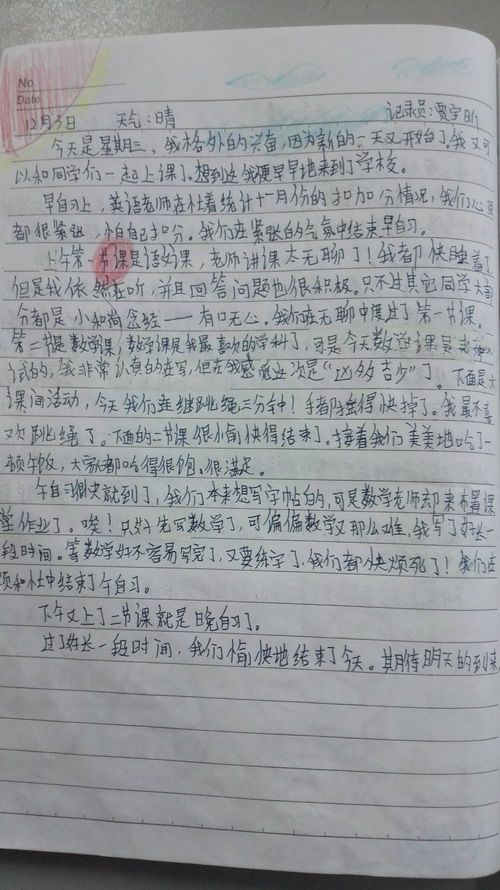 No.
Date
12月3日 天气:晴 记录员:贾宇昕
今天是星期三,我格外的兴奋,因为新的一天又开始了,我又可
以和同学们一起上课了。想到这我便早早地来到了学校。
早自习上,英语老师在忙着统计十一月份的扣加分情况,我们心里
都很紧张,怕自己扣分。我们在紧张的气氛中结束早自习。
上午第一节课是语文课,老师讲课太无聊了!我都快睡着了
但是我依然在听,并且回答问题也很积极。只不过其它同学大部
分都是小和尚念经——有口无心。我们在无聊中度过了第一节课。
第二节是数学课,数学课是我最喜欢的学科了,可是今天数学课是
试的,我非常认真的在写,但在我感觉这次是“凶多吉少”了。下面是大
课间活动,今天我们连继跳绳三分钟!手都酸得快掉了。我最不喜
欢跳绳了。下面的二节课很愉快得结束了。接着我们美美地吃了一
顿午饭,大家都吃得很饱,很满足。
午自习很快就到了,我们本来想写字帖的,可是数学老师却来布置课
堂作业了。唉!只好先写数学了,可偏偏数学又那么难,我写了好长一
段时间。等数学好不容易写完了,又要练字了,我们都快烦死了!我们在
烦和忙中结束了午自习。
下午又上了二节课就是晚自习了。
过了好长一段时间,我们愉快地结束了今天。期待明天的到来